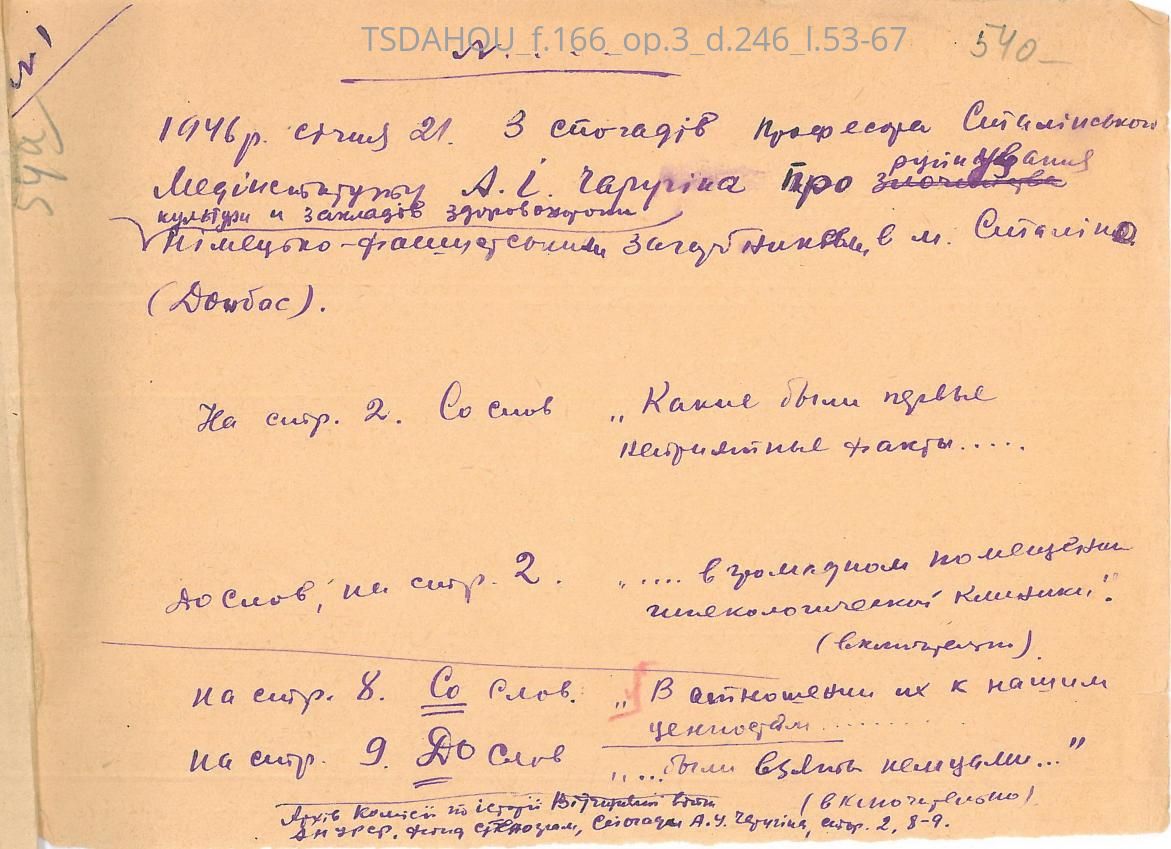 TSDAHOU_f.166_op.3_d.246_l.53-67
540
54а
N. . . .
1946 р. січня 21. З спогадів професора Сталінського
Медінституту А. І. Чаругіна про злочинства руйнування
культури и закладів здоровохорони
німецько-фашистськими загарбниками, в м. Сталіно
(Донбас).
На стр. 2. Со слов „Какие были первые
неприятные факты.....
До слов, на стр. 2. „.... в громадном помещении
гинекологической клиники".
(включительно).
на стр. 8. Со слов. „В отношении их к нашим
ценностям ........
на стр. 9. До слов „... были взяты немцами..."
(включительно)
Архів Комісії по історії Вітчизняної війни
АН УРСР, Фонд стенограм, Спогади А. И. Чаругіна, стор. 2, 8-9.